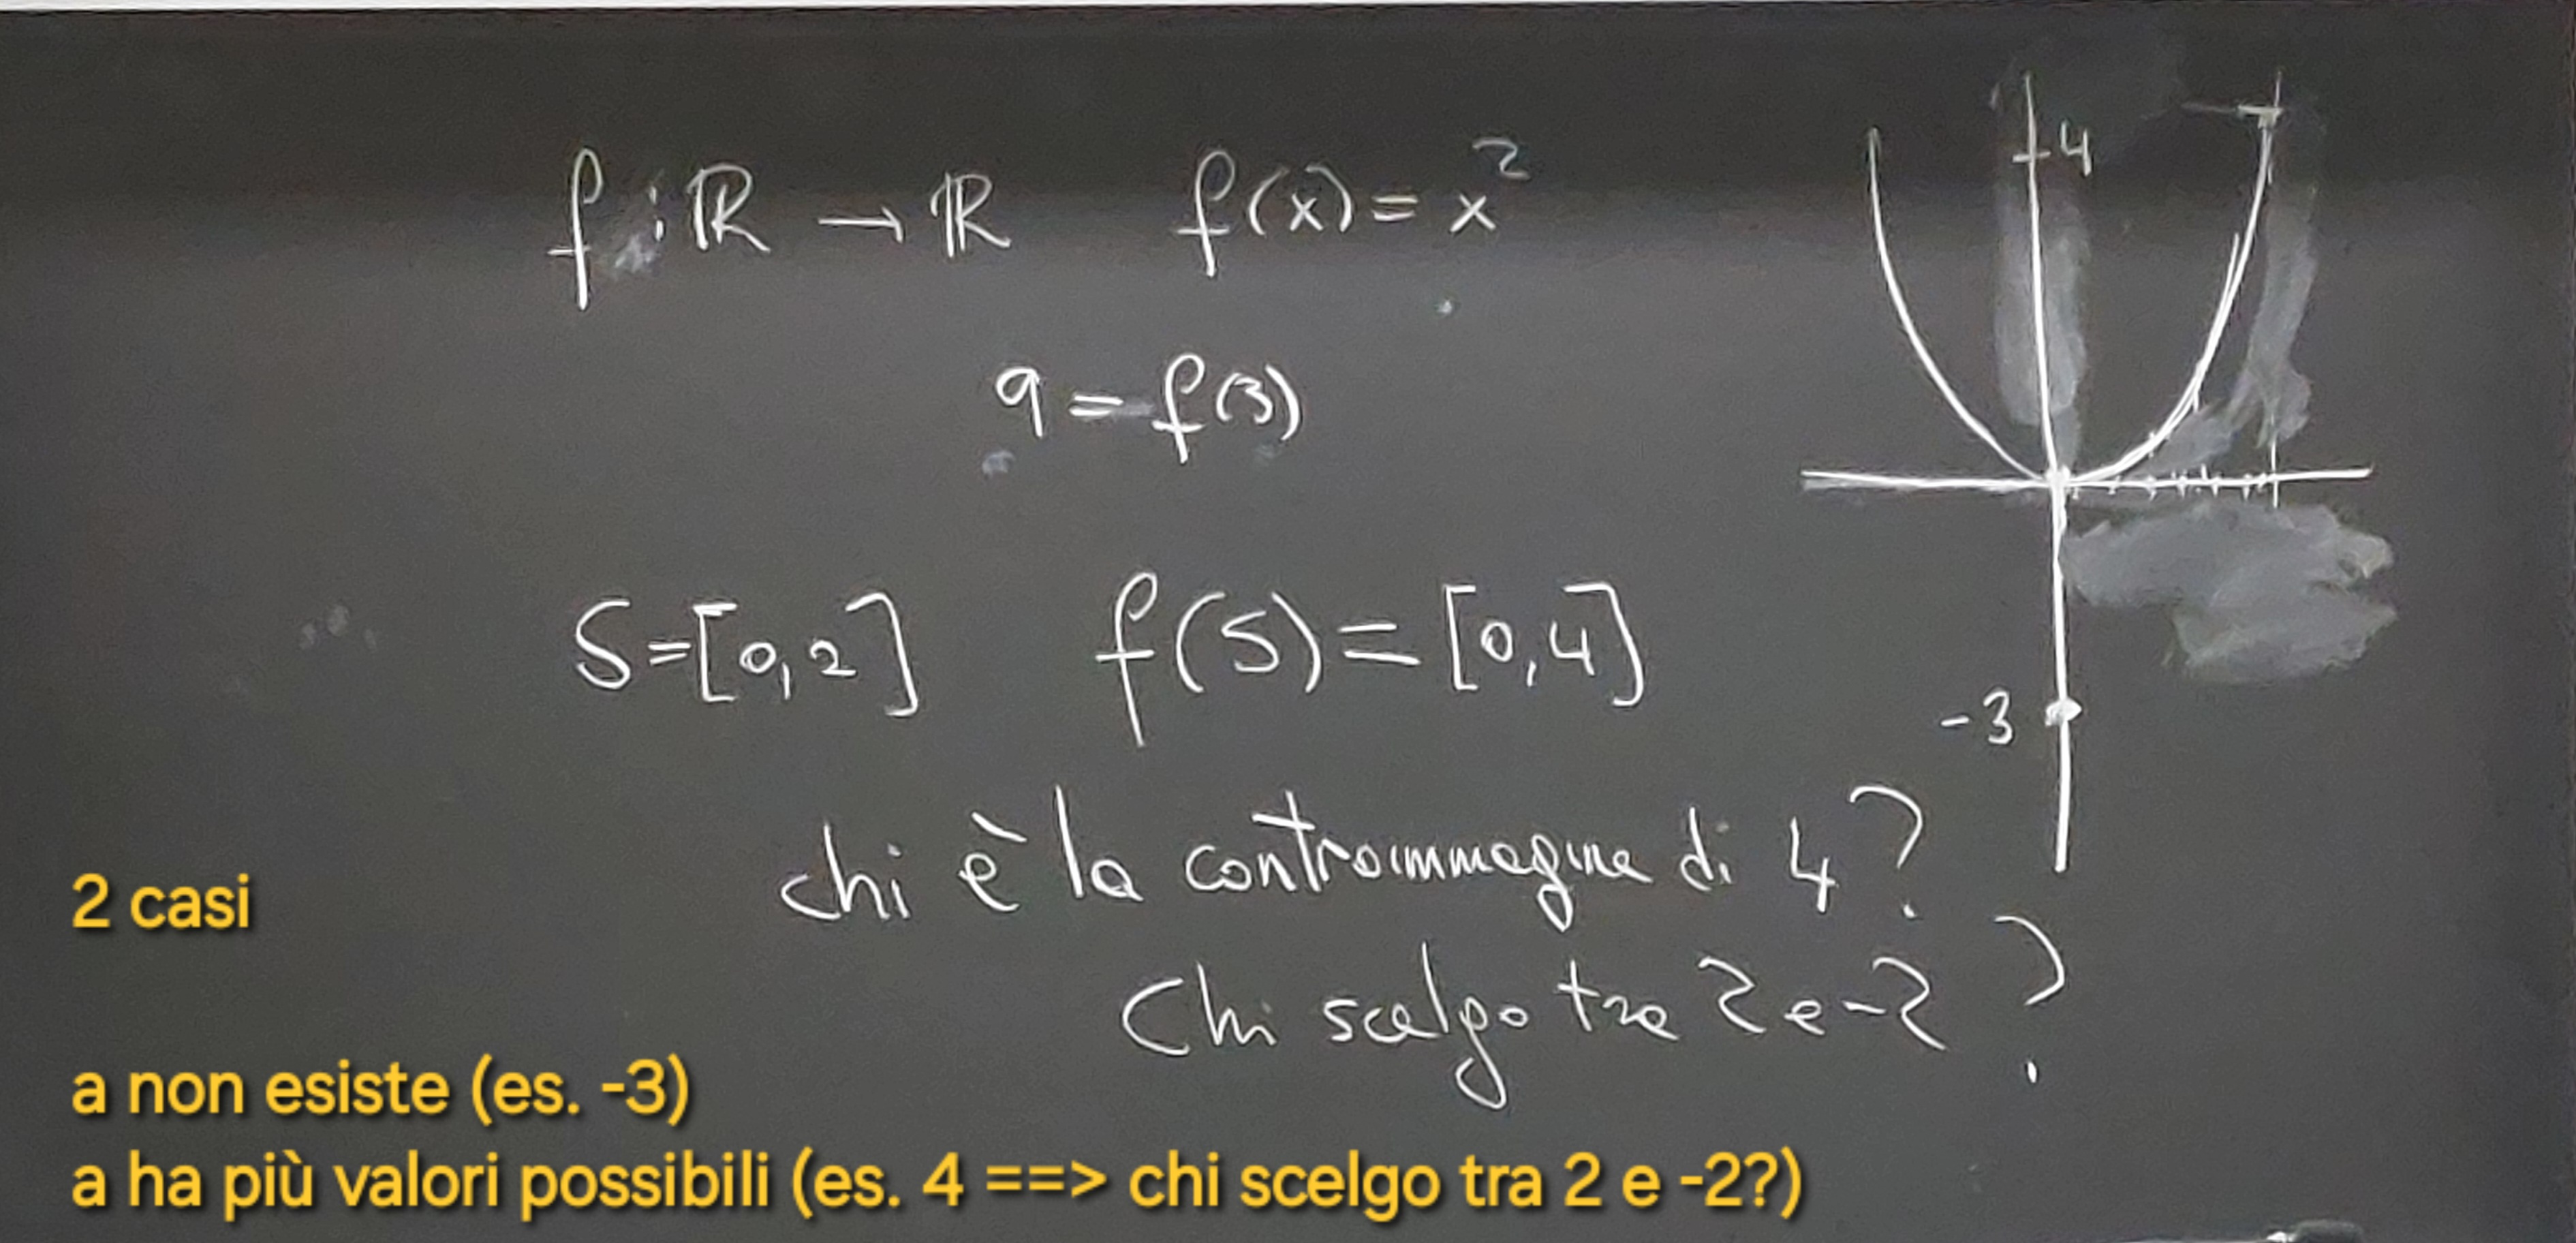 f: ℝ → ℝ f(x) = x²
4
9 = f(3)
S=[0,2] f(S)=[0,4]
-3
chi è la controimmagine di 4?
Chi scelgo tra 2 e -2?
2 casi
a non esiste (es. -3)
a ha più valori possibili (es. 4 ==> chi scelgo tra 2 e -2?)